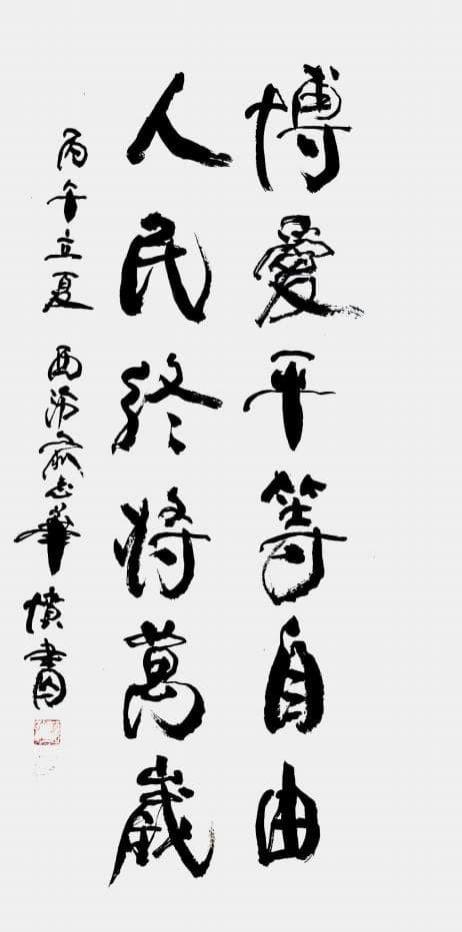 博愛平等自由
人民終將萬歲
丙午立夏 西浒俞志華 愤書